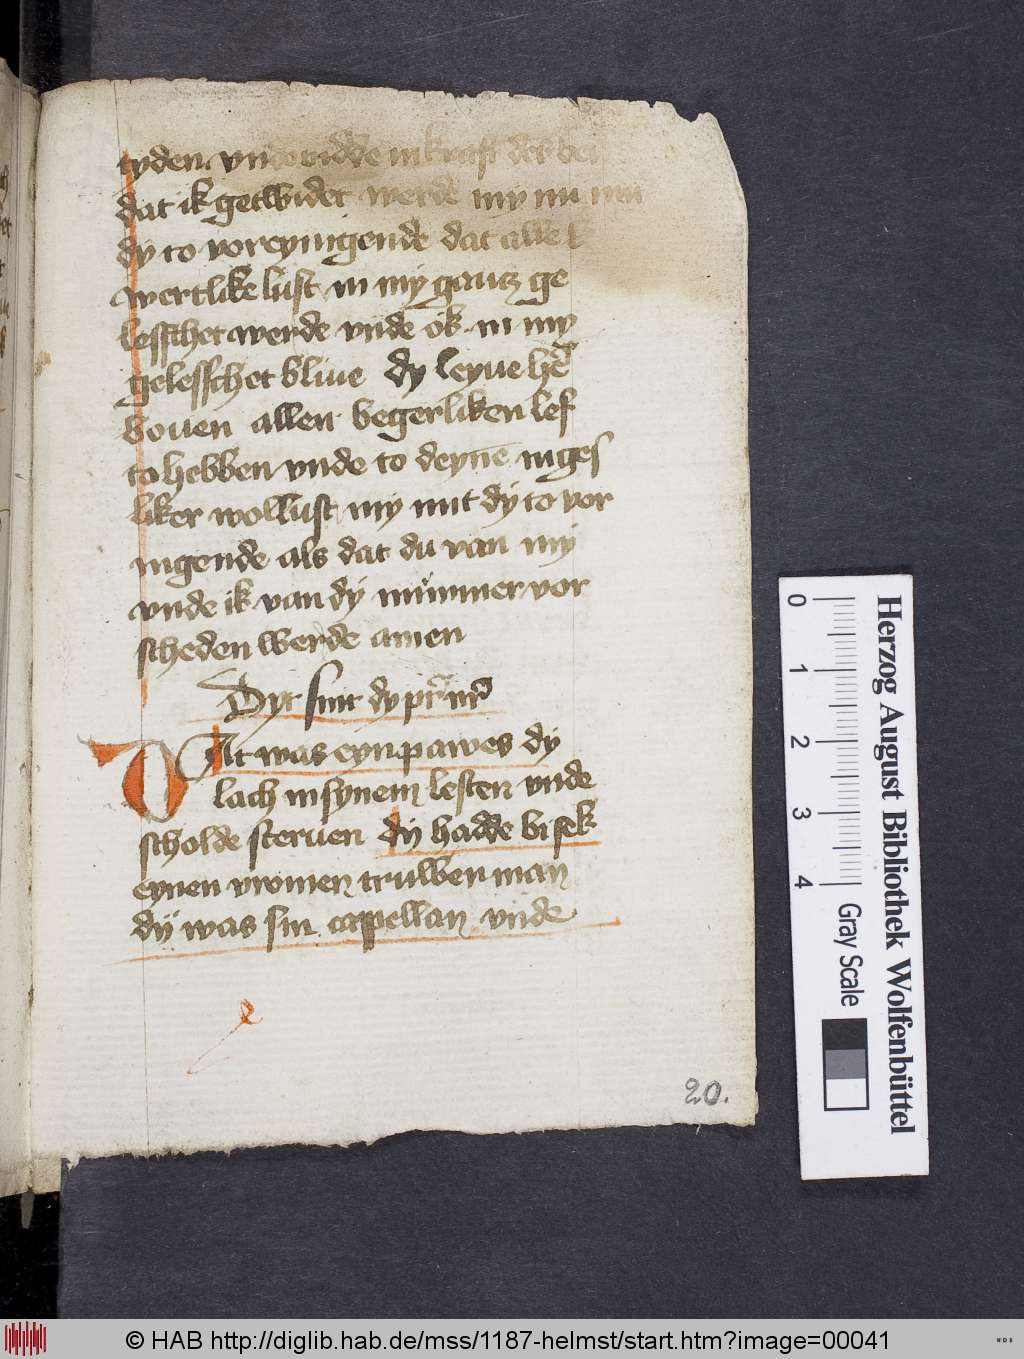 tyden vnde bidde in kraft des
dat ik getwidet werde my nu
dy to voreynigende dat alle
wertlike lust in my gantz ge
lesschet werde vnde ok in my
gelesschet bliue dy leyue hē
bouen allen begerliken lef
to hebben vnde to deynē
liker wollust my mit dy to vor
nigende als dat du van my
vnde ik van dy nūmmer vor
scheden werde amen
Dyt sint dy pr̄ nr̄
Dat was eyn pawes dy
lach in synem lesten vnde
scholde steruen dy hadde bi sek
eynen vromen truwen man
dy was sin cappellan vnde
20.
Herzog August Bibliothek Wolfenbüttel
0 1 2 3 4
Gray Scale
© HAB http://diglib.hab.de/mss/1187-helmst/start.htm?image=00041